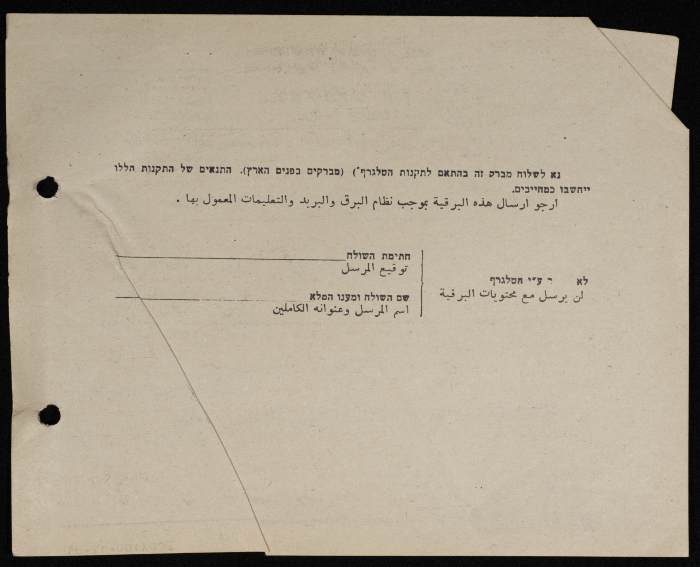 נא לשלוח מברק זה בהתאם לתקנות הטלגרף*) (מברקים בפנים הארץ). התנאים של התקנות הללו
ייחשבו כמחייבים.
ارجو ارسال هذه البرقية بموجب نظام البرق والبريد والتعليمات المعمول بها .
חתימת השולח
توقيع المرسل
שם השולח ומענו המלא
اسم المرسل وعنوانه الكاملين
לא ר ע״י הטלגרף
لن يرسل مع محتويات البرقية